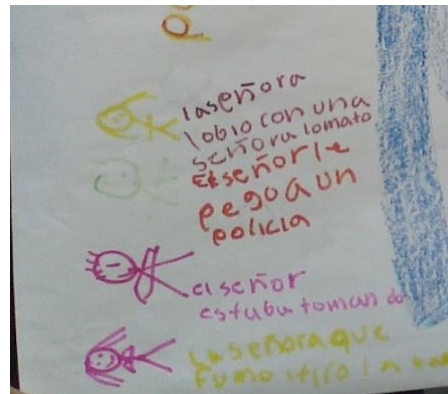 la señora
lobio con una
señora lomato
El señor le
pego a un
policia
el señor
estaba tomando
La señora que
fumo y tiro la ba